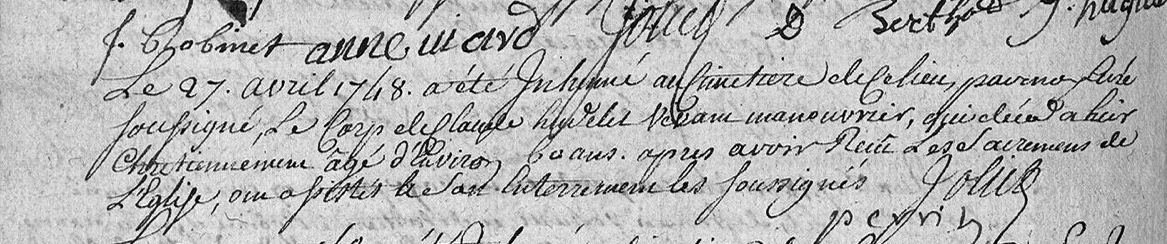 f. Robinet anne uiard Jolly D Berthod J. hugue
Le 27. avril 1748. a été Inhumé au Cimetiere de Ce lieu, par no Curé
soussigné, Le Corp de Claude hudelet vivant manouvrier, qui décéda hier
Chretiennement âgé d'Environ 60 ans. apres avoir Reçu Les Sacremens de
L'Eglise, ont assistés à Son Enterrement les soussignés Jolly
perrin